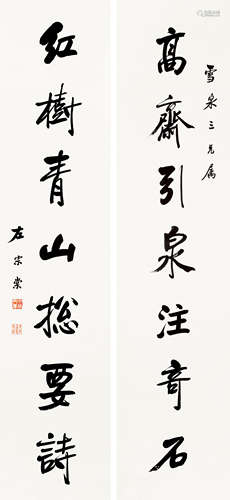 雪泉三兄属
高齋引泉注奇石
紅樹青山揔要詩
左宗棠